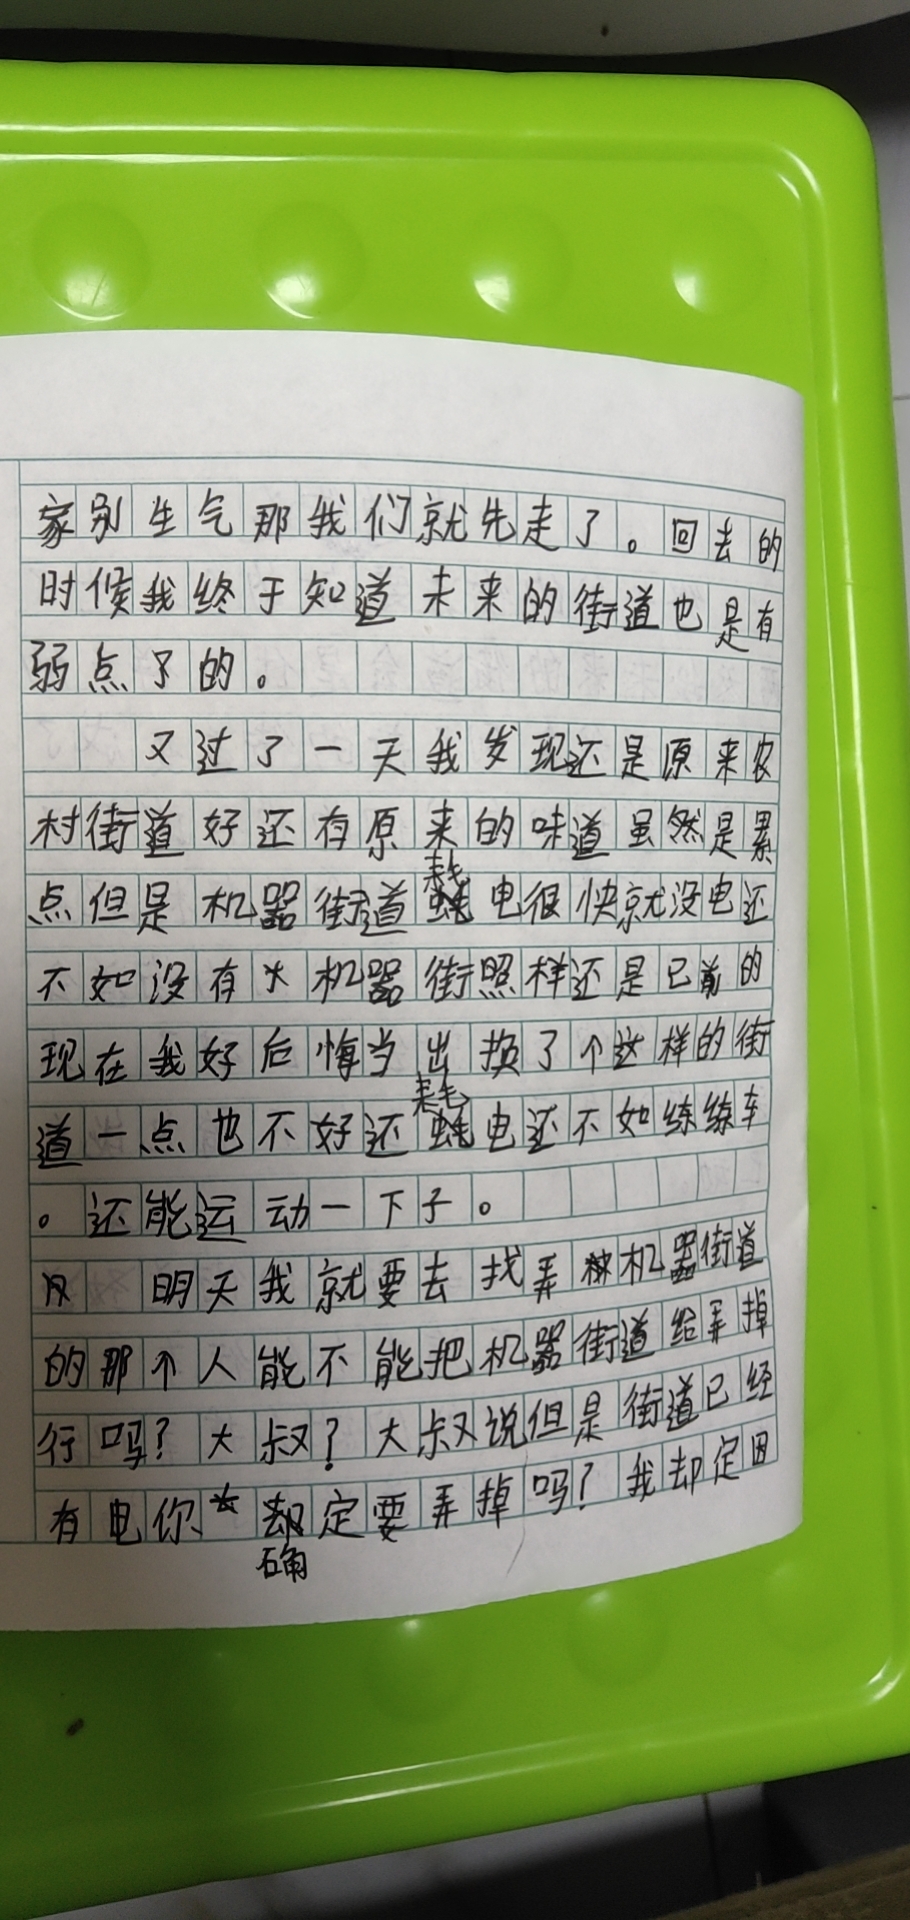 家别生气那我们就先走了。回去的
时候我终于知道未来的街道也是有
弱点了的。
又过了一天我发现还是原来农
村街道好还有原来的味道虽然是累
耗
点但是机器街道蚝电很快就没电还
不如没有火机器街照样还是已前的
现在我好后悔当出换了个这样的街
耗
道一点也不好还蚝电还不如练练车
。还能运动一下子。
明天我就要去找弄机器街道
的那个人能不能把机器街道给弄掉
行吗？大叔？大叔说但是街道已经
有电你却定要弄掉吗？我却定因
确